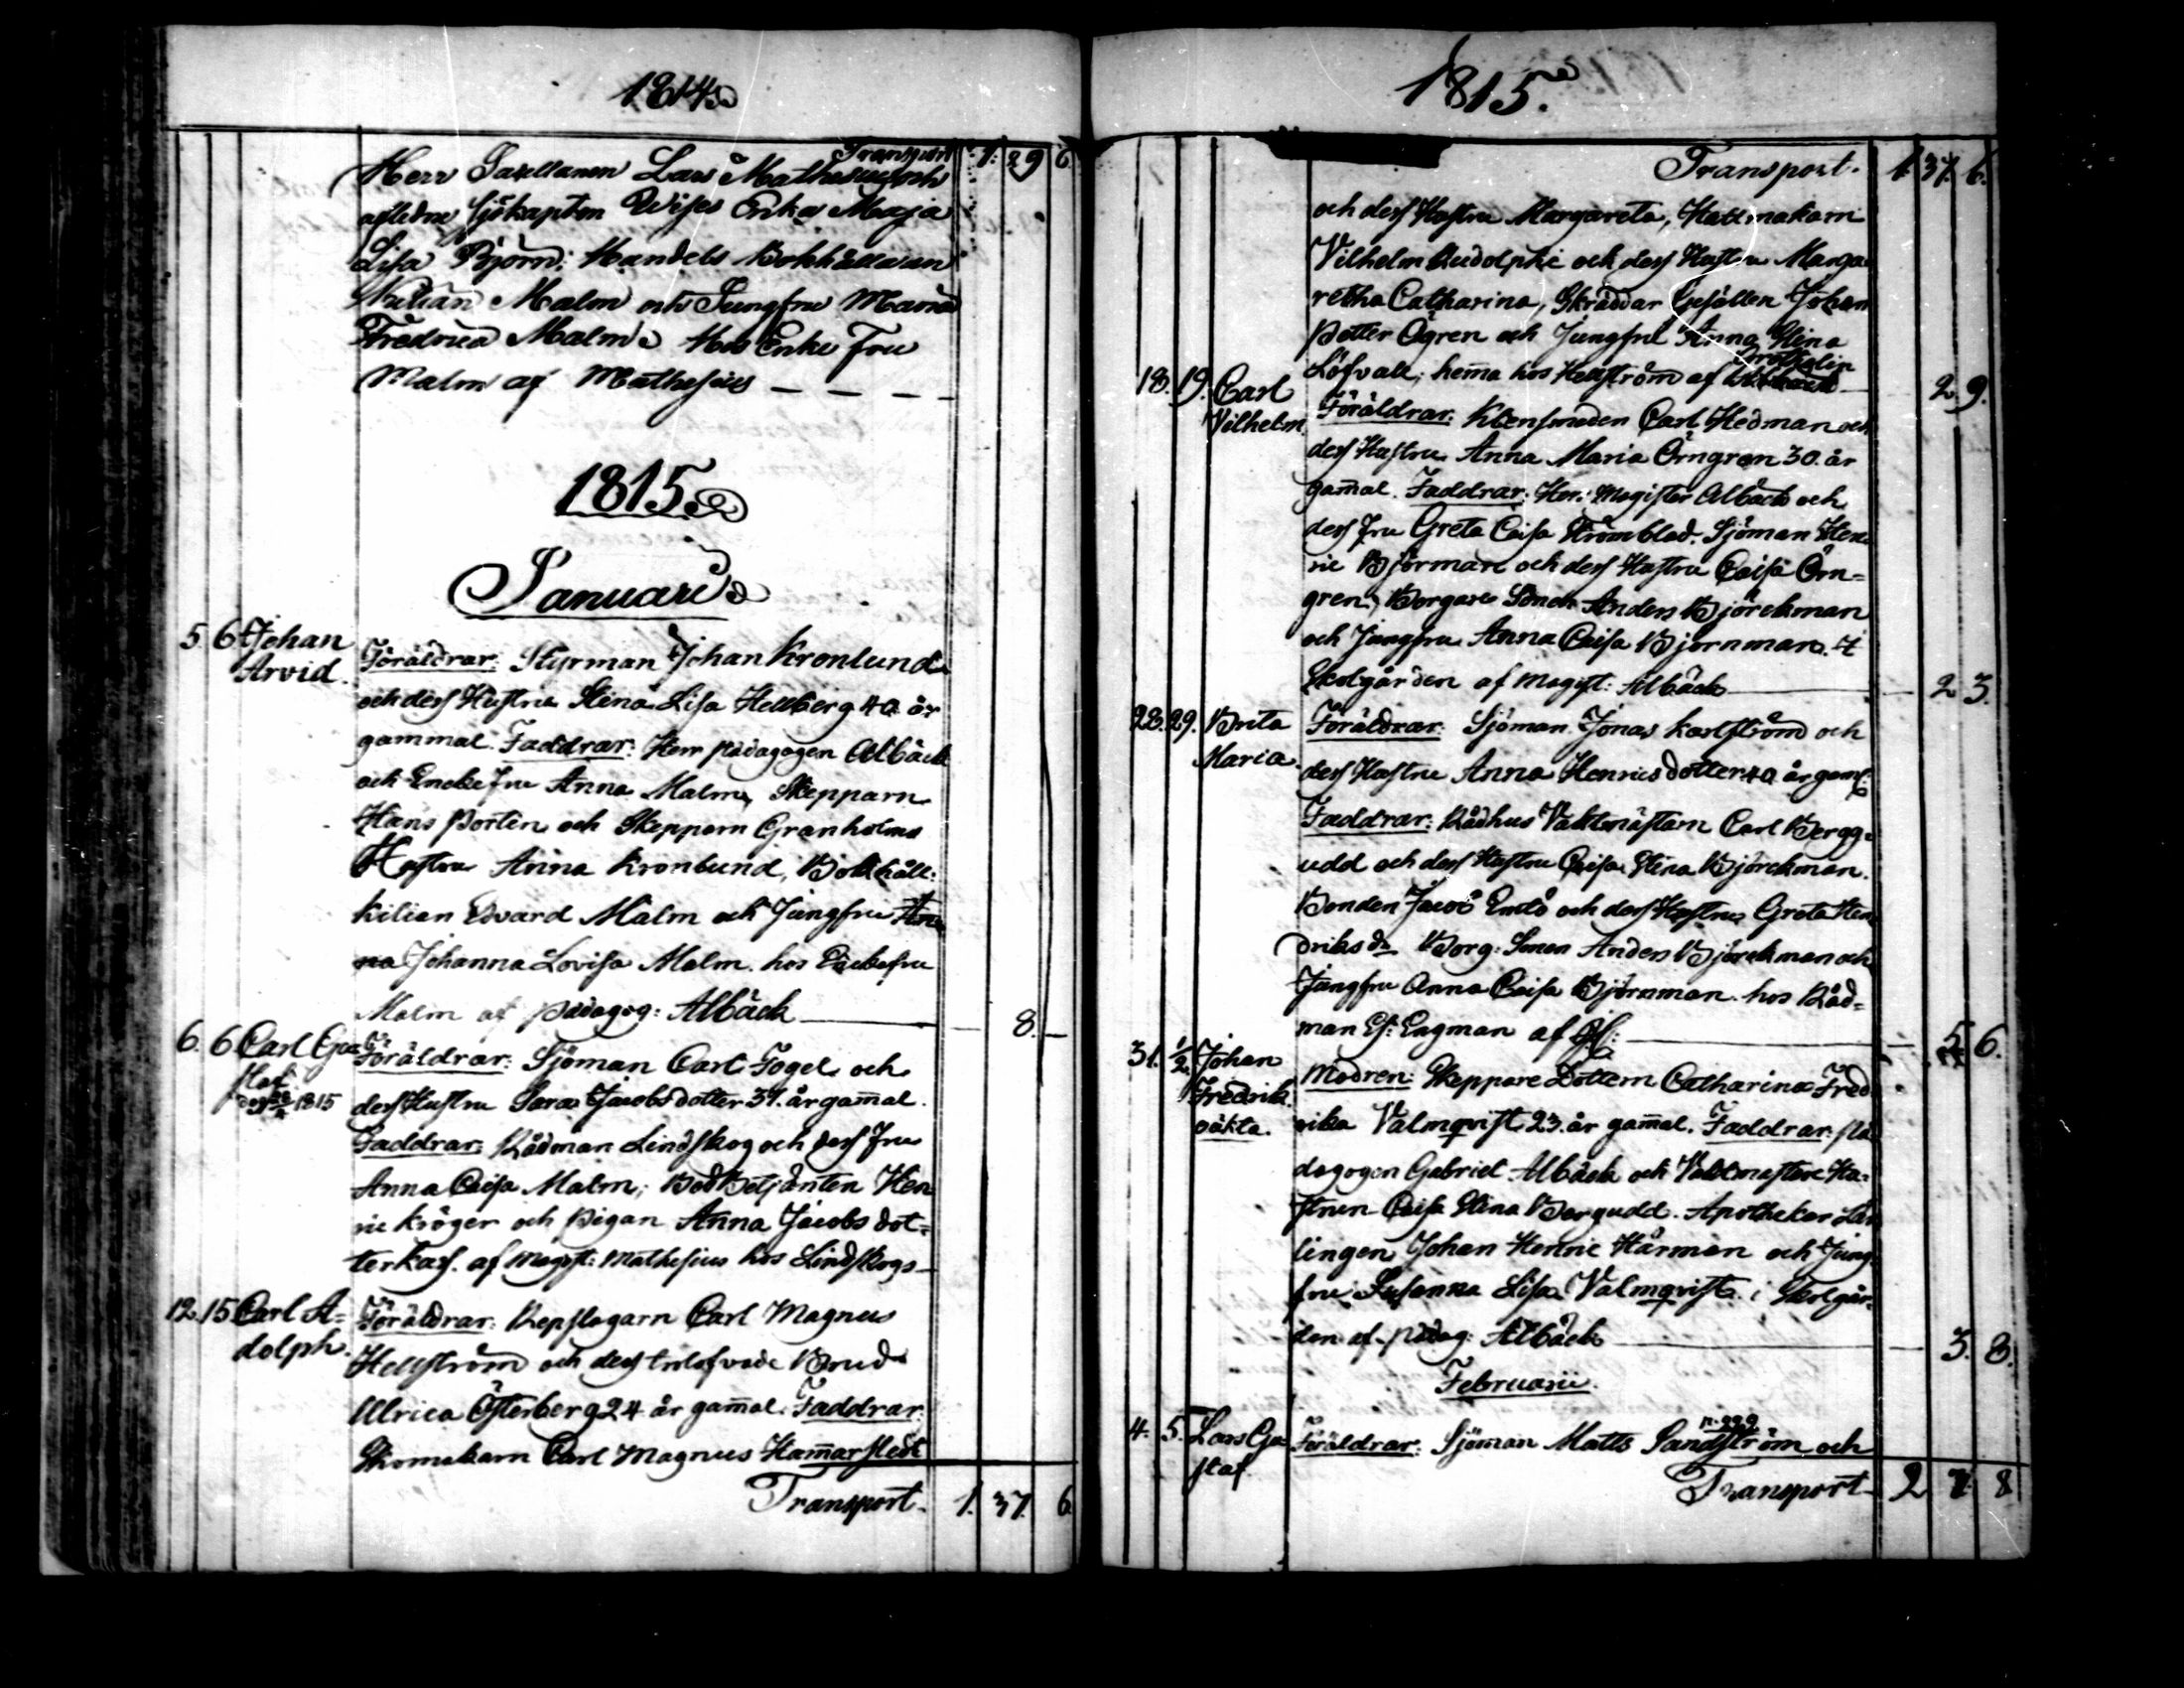 1814
Transport 1. 29 6.
Herr Sacellanen Lars Mathesius och
afledne Sjökapten Wijses Enka Maja
Lisa Björn; Handels Bokhållaren
Kilian Malm och Jungfru Maria
Fredrica Malm. Hos Enke Fru
Malm af Mathesius — — — —
1815
Januarii
5. 6. Johan Föräldrar: Styrman Johan Kronlund
Arvid. och dess Hustru Stina Lisa Hellberg 40 år
gammal. Faddrar: Herr Pädagogen Albäck
och Enckefru Anna Malm, Skepparn
Hans Portin och Skepparn Granholms
Hustru Anna Kronlund, Bokhåll:
Kilian Edvard Malm och Jungfru An
na Johanna Lovisa Malm. hos Enckefru
Malm af Pädagog: Albäck — 8. —
6. 6. Carl Gu Föräldrar: Sjöman Carl Fogel och
staf dess Hustru Sara Jacobsdotter 37. år gamal.
1815
Faddrar: Rådman Lindskog och dess Fru
Anna Caisa Malm; Bodbetjänten Hen
ric Kröger och Pigan Anna Jacobs dot=
ter Kass. af Magist: Mathesius hos Lindskogs —
12. 15. Carl A= Föräldrar: Repslagarn Carl Magnus
dolph. Hellström och dess trolofvade Brud
Ulrica Österberg 24 år gamal. Faddrar
Skomakarn Carl Magnus Hamarstedt
Transport 1. 37. 6.
1815.
Transport. 1. 37. 6.
och dess Hustru Margareta, Hattmakarn
Vilhelm Rudolphi och dess Hustru Marga
retha Catharina, Skräddar Gesällen Johan
Petter Ögren och Jungfru Anna Stina
Löfvall; hema hos Hellström af — 2 9.
18. 19. Carl Föräldrar: Klensmeden Carl Hedman och
Vilhelm. dess Hustru Anna Maria Örngren 30. år
gamal. Faddrar: Her: Magister Albäck och
dess Fru Greta Caisa Strömblad. Sjöman Hen
ric Björnman och dess Hustru Caisa Örn=
gren; Borgare Sonen Anders Björckman
och Jungfru Anna Caisa Björnman. I
Skolgården af Magist: Albäck — 2 3.
23. 29. Brita Föräldrar: Sjöman Jonas Karlström och
Maria. dess Hustru Anna Henricsdotter 40 år gam:
Faddrar: Rådhus Vaktmästarn Carl Bergg=
udd och dess Hustru Caisa Stina Björckman.
Bonden Jacob Emtö och dess Hustru Greta Hen
driks dr Borg: Sonen Anders Björckman och
Jungfru Anna Caisa Björnman. hos Råd=
man Es: Engman af — 5 6.
31. 1/2. Johan Modren: Skeppare Dottern Catharina Fred
Fredrik rika Valmqvist 23. år gamal. Faddrar: Pä
oäkta. dagogen Gabriel Albäck och Vaktmästare Hu=
strun Caisa Stina Bergudd. Apothekar Lär
lingen Johan Henric Härmän och Jung
fru Susanna Lisa Valmqvist. i Skolgår=
den af Pädag: Albäck — 3. 8.
Februarii.
4. 5. Lars Gu Föräldrar: Sjöman Matts Sandström och
staf
n. 229
Transport 2 7. 8